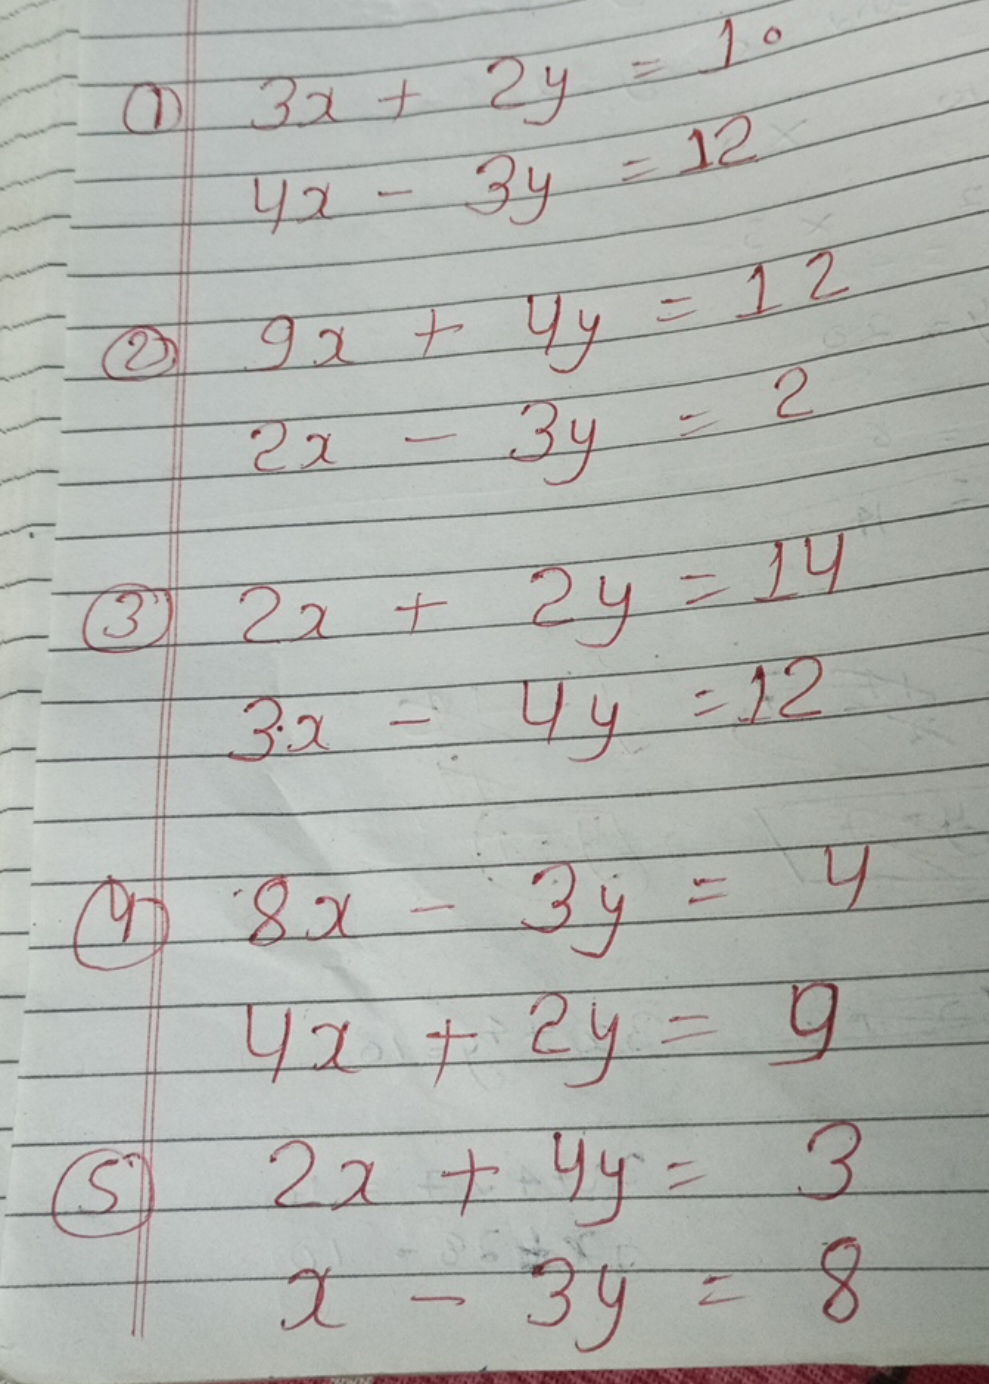 ① 3x + 2y = 10
4x - 3y = 12
② 9x + 4y = 12
2x - 3y = 2
③ 2x + 2y = 14
3x - 4y = 12
④ 8x - 3y = 4
4x + 2y = 9
⑤ 2x + 4y = 3
x - 3y = 8